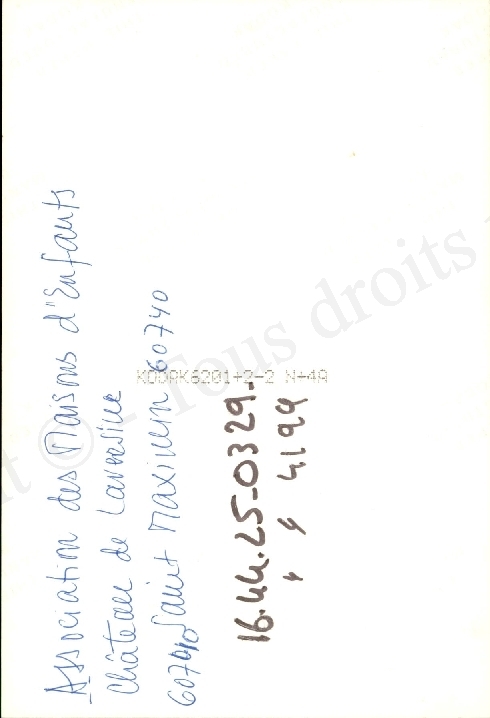 Association des Maisons d'Enfants
Château de Laversine
60740 Saint Maximin 60740
KODAK6201+2-2 N+4A
16.44.25-0329-
" " 4199
© - Tous droits